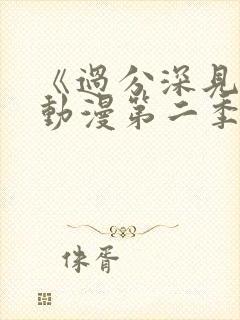 《過分深見
動漫第二季
侏胥